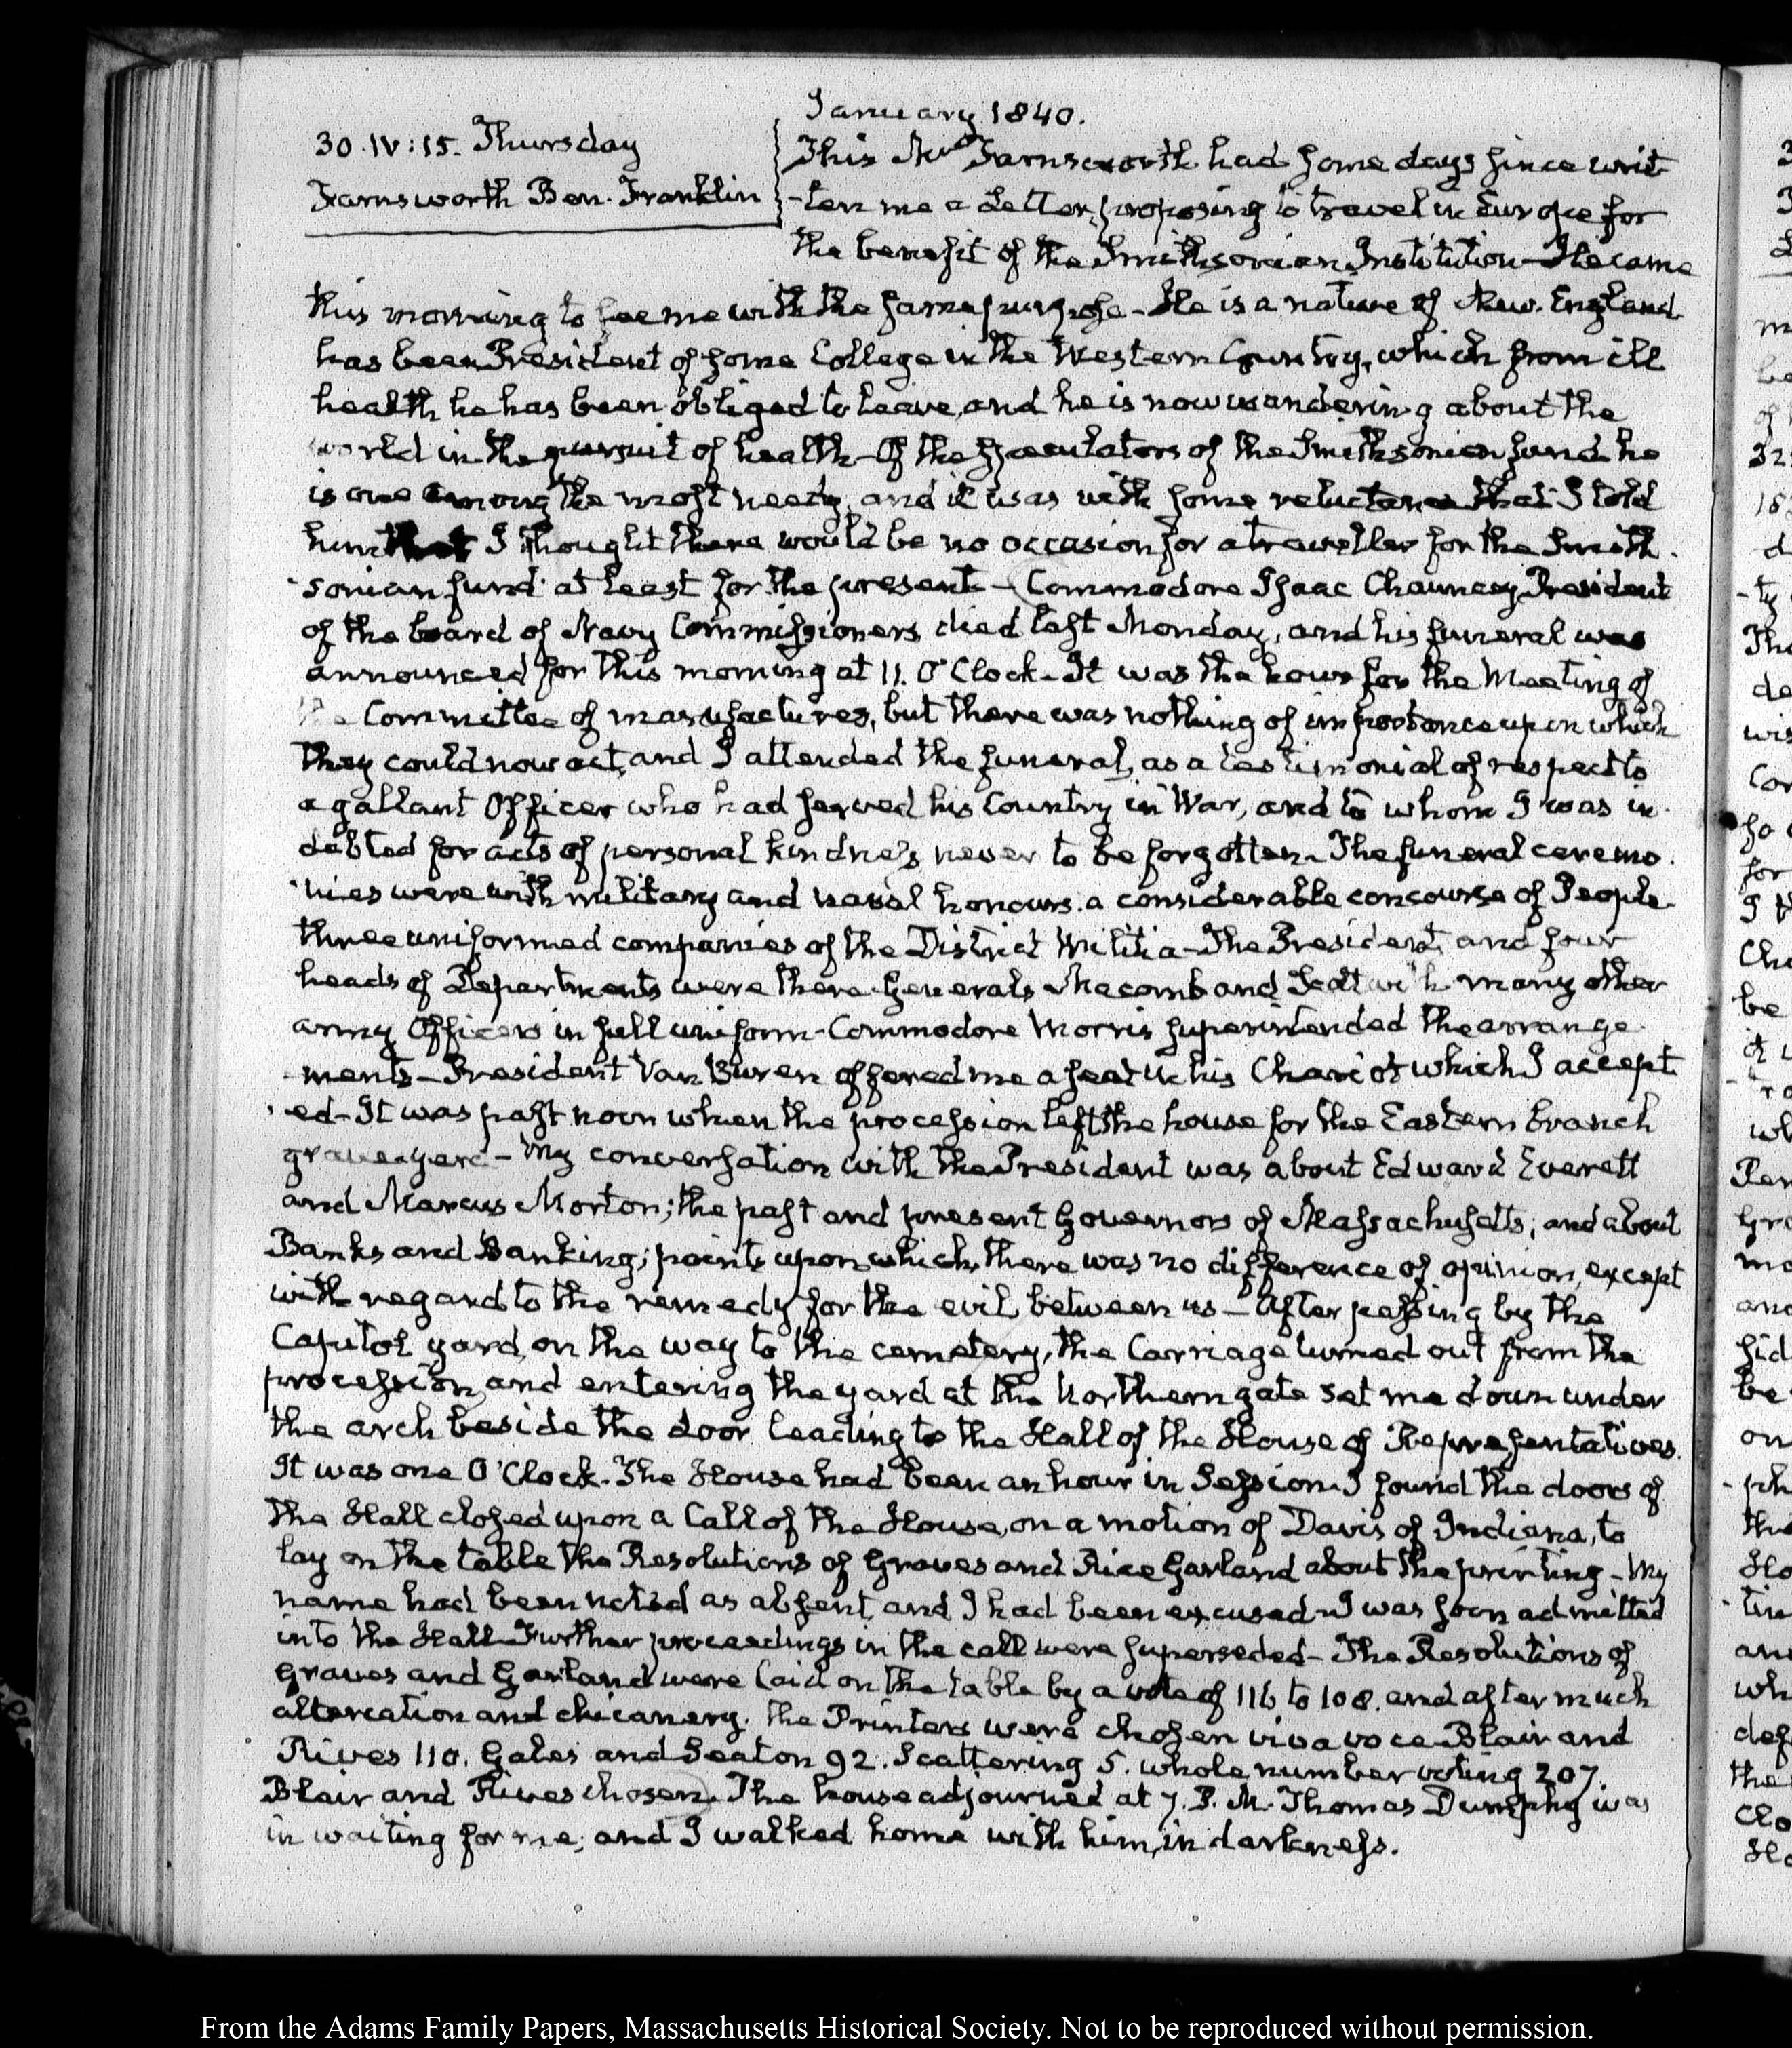 January 1840.
30. IV:15. Thursday
Farnsworth Ben. Franklin
This Mr Farnsworth had some days since writ-
-ten me a Letter, proposing to travel in Europe for
the benefit of the Smithsonian Institution— He came
this morning to see me with the same purpose— He is a native of New-England
has been President of some College in the Western Country, which from ill
health he has been obliged to leave, and he is now wandering about the
world in the pursuit of health— Of the speculators of the Smithsonian fund he
is one among the most needy, and it was with some reluctance that I told
him that I thought there would be no occasion for a traveller for the Smith-
-sonian fund at least for the present— Commodore Isaac Chauncey President
of the board of Navy Commissioners died last Monday, and his funeral was
announced for this morning at 11. O'Clock— It was the hour for the Meeting of
the Committee of manufactures, but there was nothing of importance upon which
they could now act, and I attended the funeral, as a testimonial of respect to
a gallant Officer who had served his Country in War, and to whom I was in-
debted for acts of personal kindness never to be forgotten— The funeral ceremo-
-nies were with military and naval honours. a considerable concourse of People
three uniformed companies of the District Militia— The President, and four
heads of Departments were there. Generals Macomb and Scott with many other
army Officers in full uniform— Commodore Morris superintended the arrange-
-ments— President Van Buren offered me a seat in his Chariot which I accept-
-ed— It was past noon when the procession left the house for the Eastern branch
graveyard— My conversation with the President was about Edward Everett
and Marcus Morton; the past and present Governors of Massachusetts; and about
Banks and Banking; points upon which there was no difference of opinion, except
with regard to the remedy for the evil between us— After passing by the
Capitol yard, on the way to the cemetery, the Carriage turned out from the
procession, and entering the yard at the Northern gate set me down under
the arch beside the door leading to the Hall of the House of Representatives.
It was one O'Clock. The House had been an hour in Session. I found the doors of
the Hall closed upon a Call of the House, on a motion of Davis of Indiana, to
lay on the table the Resolutions of Graves and Rice Garland about the printing— My
name had been noted as absent, and I had been excused— I was soon admitted
into the Hall— Further proceedings in the call were superseded— The Resolutions of
Graves and Garland were laid on the table by a vote of 116 to 108. and after much
altercation and chicanery. the Printers were chosen viva voce— Blair and
Rives 110. Gales and Seaton 92. Scattering 5. whole number voting 207.
Blair and Rives chosen. The house adjourned at 7. P.M. Thomas Dumphy was
in waiting for me; and I walked home with him, in darkness.
From the Adams Family Papers, Massachusetts Historical Society. Not to be reproduced without permission.